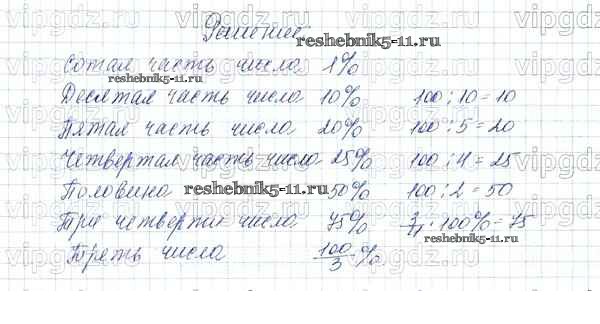 Решение
reshebnik5-11.ru
Сотая часть числа 1%
reshebnik5-11.ru
Десятая часть числа 10% 100 : 10 = 10
Пятая часть числа 20% 100 : 5 = 20
Четвертая часть числа 25% 100 : 4 = 25
Половина reshebnik5-11.ru 50% 100 : 2 = 50
Три четверти числа 75% 3/4 · 100% = 75
reshebnik5-11.ru
Треть числа 100/3 %